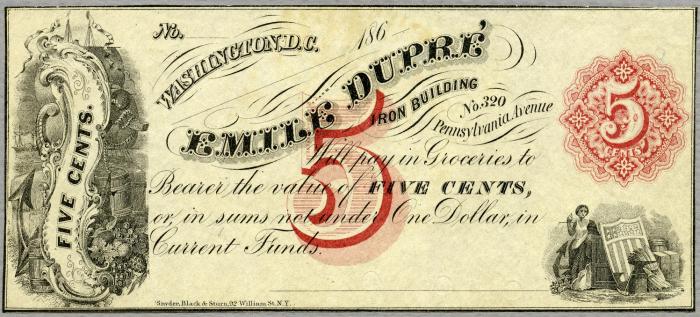 No.
186
WASHINGTON, D.C.
EMILE DUPRÉ
IRON BUILDING
No. 320
Pennsylvania Avenue
FIVE CENTS.
5
5
CENTS
Will pay in Groceries to
Bearer the value of FIVE CENTS,
or, in sums not under One Dollar, in
Current Funds.
Snyder, Black & Sturn, 92 William St. N.Y.